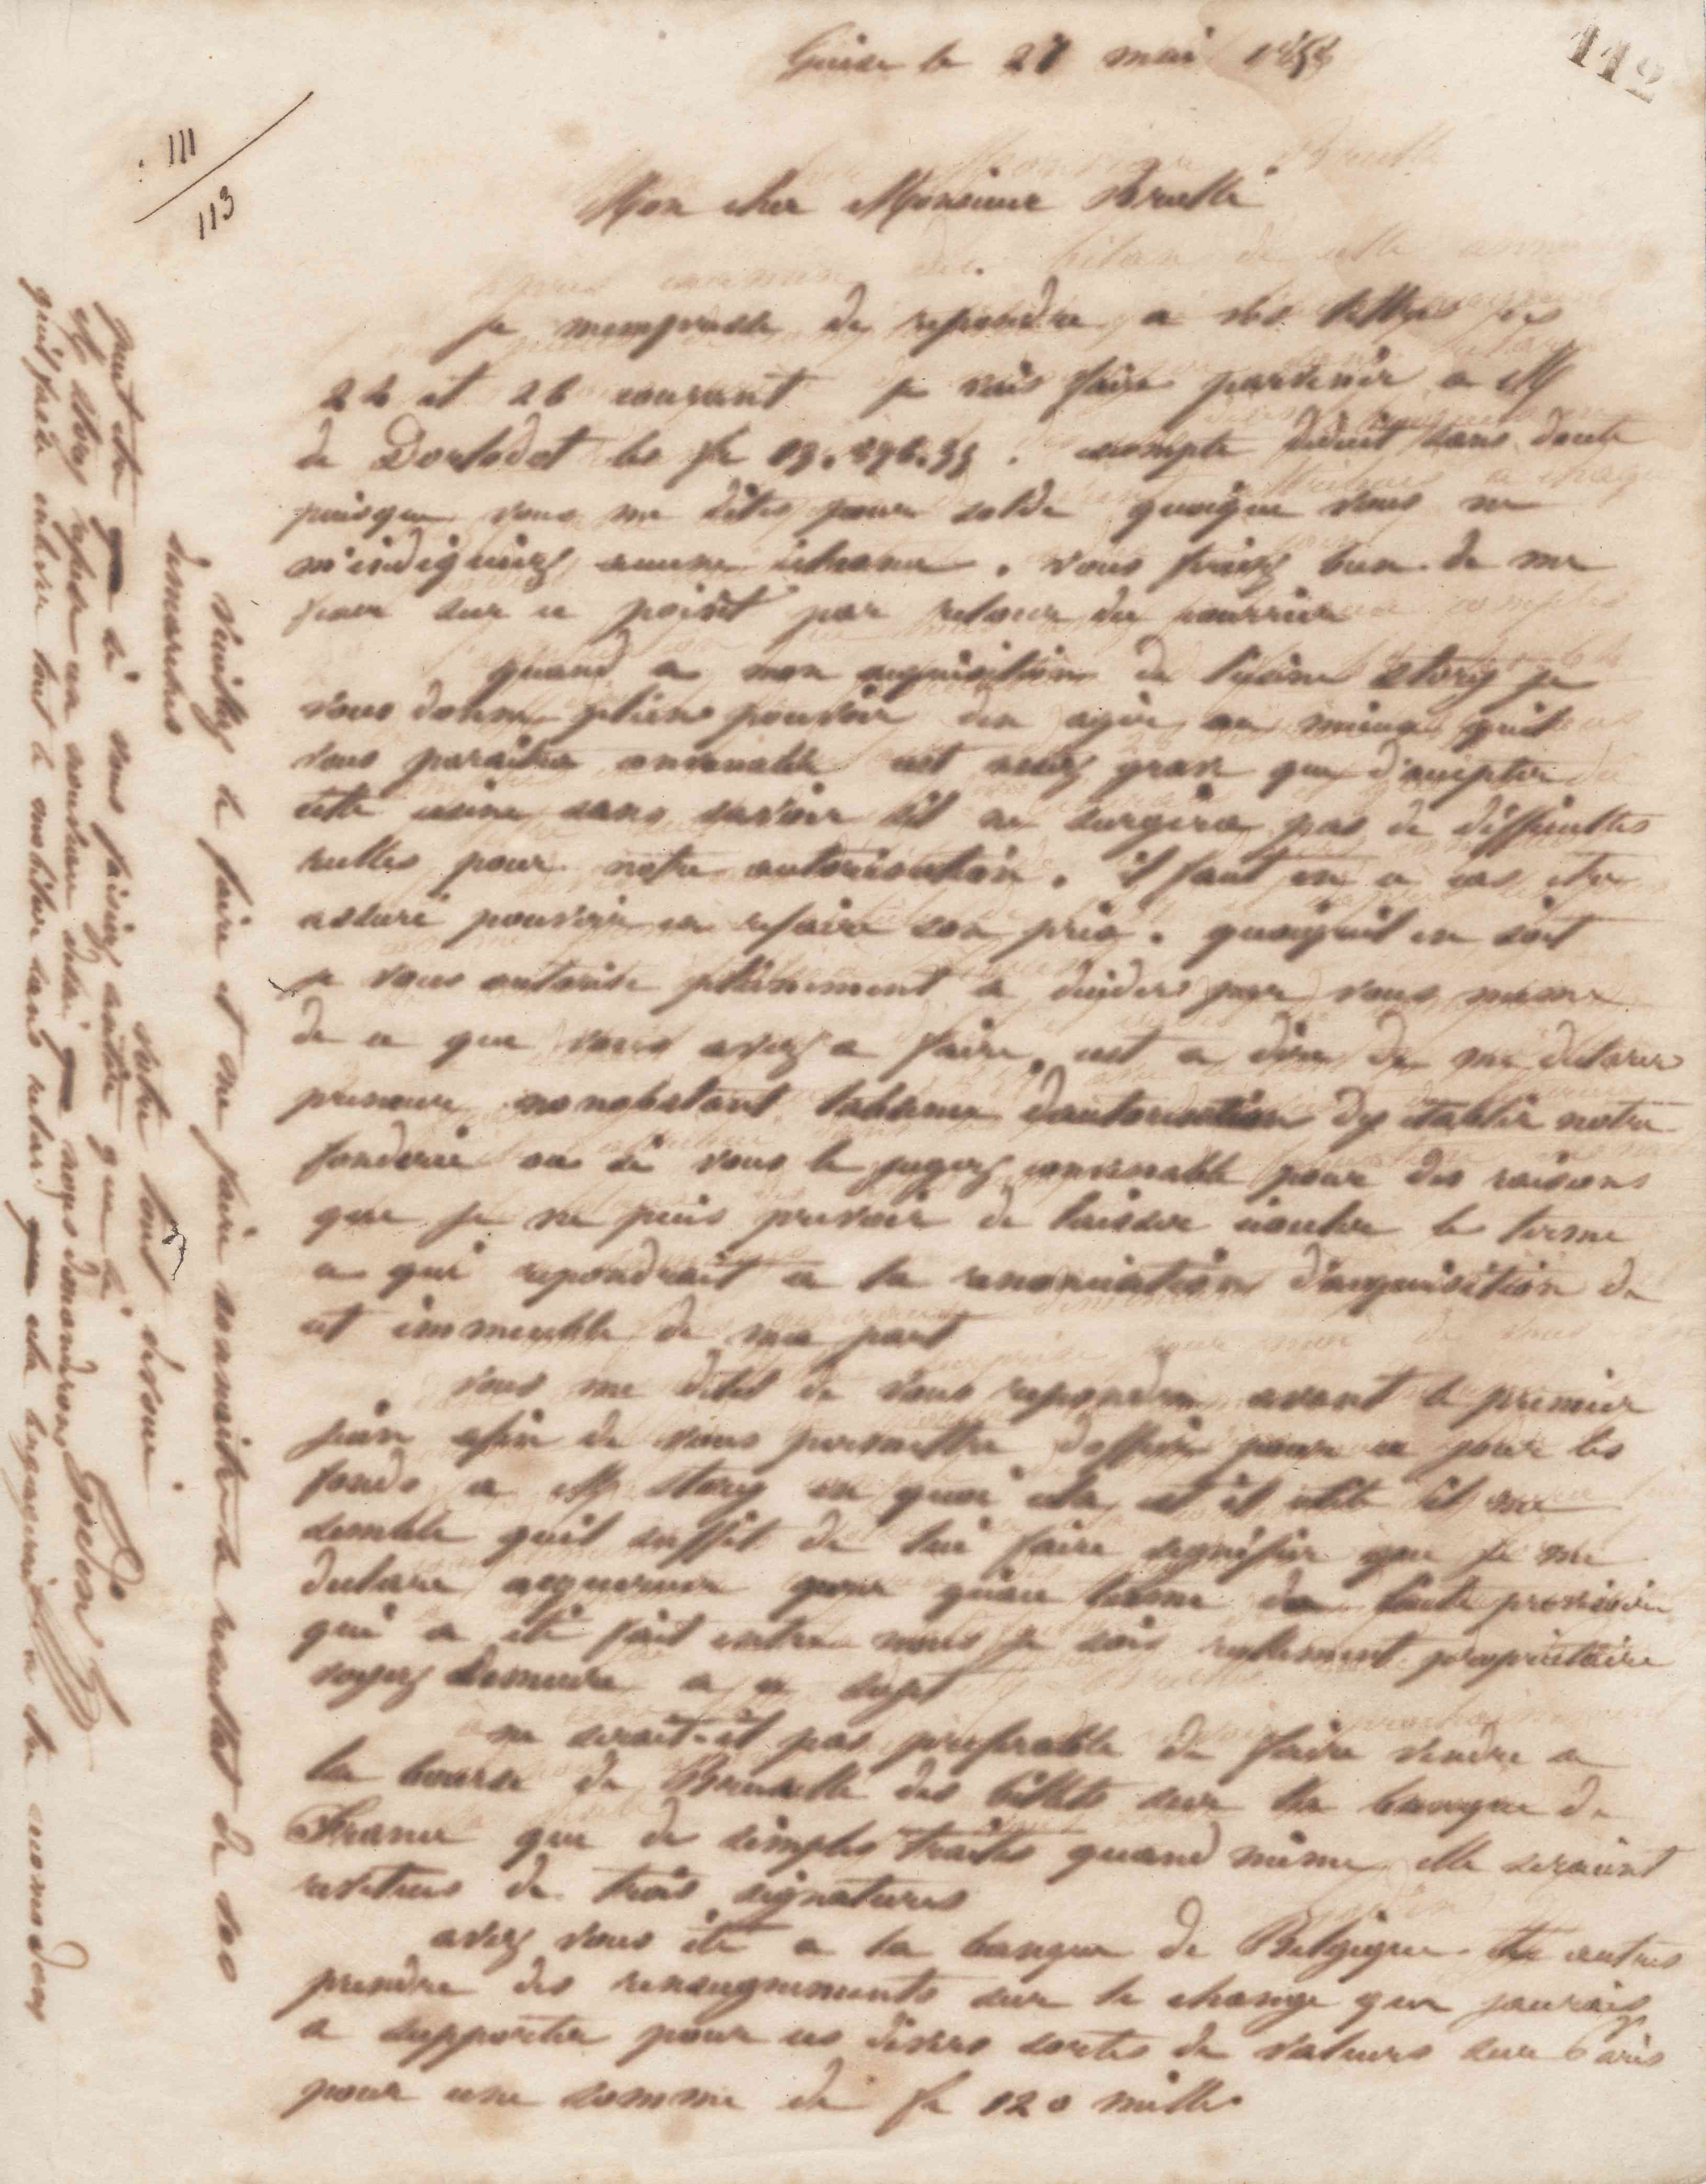 112
Guise le 27 mai 1858
111
113
Mon cher Monsieur Brullé
je mempresse de repondre a vos lettres des
24 et 26 courant je vais faire parvenir a M
de Dorlodot les fr compte sans doute
puisque vous me dites pour solde quoique vous ne
m'indiquiez aucune . vous feriez bien de me
fixer sur ce point par retour du courrier
quand a mon acquisition de lusine Story je
vous donne pleins pouvoir den agir au mieux quil
vous paraitra convenable cest assez grave que d'accepter
cette usine sans savoir sil ne surgira pas de difficultes
reelles pour notre autorisation. il faut en ce cas etre
assuré pouvoir en refaire son prix. quoiquil en soit
je vous autorise pleinement a decider par vous meme
de ce que vous avez a faire, cest a dire de me declarer
preneur nonobstant labsence dautorisation dy etablir notre
fonderie ou si vous le jugez convenable pour des raisons
que je ne puis prevoir de laisser ecouler le terme
ce qui repondrait a la renonciation d'acquisition de
cet immeuble de ma part
vous me dites de vous repondre avant le premier
juin afin de vous permettre doffrir pour ce jour les
fonds a M Story en quoi cela est il utile il me
semble quil suffit de lui faire signifier que je me
declare acquereur pour quau terme de lacte provisoire
qui a été fait entre nous je sois reellement proprietaire
voyez Demeure a ce sujet
ne serait-il pas preferable de faire vendre a
la bourse de Bruxelle des billets sur la banque de
France que de simples traites quand même elle seraient
revetues de trois signatures
avez vous été a la banque de Belgique et autres
prendre des renseignements sur le change que jaurais
a supporter pour ces divers sortes de valeurs sur Paris
pour une somme de fr 120 mille
Veuillez le faire et me faire connaitre le resultat de vos
demarches
votre tout devoué
Godin
peut etre si vous faisiez entendre que la
et Story refuse un nouveau delai nous demanderons
quil fasse enlever tout le mobilier sans retard cela lengagerait a en accorder